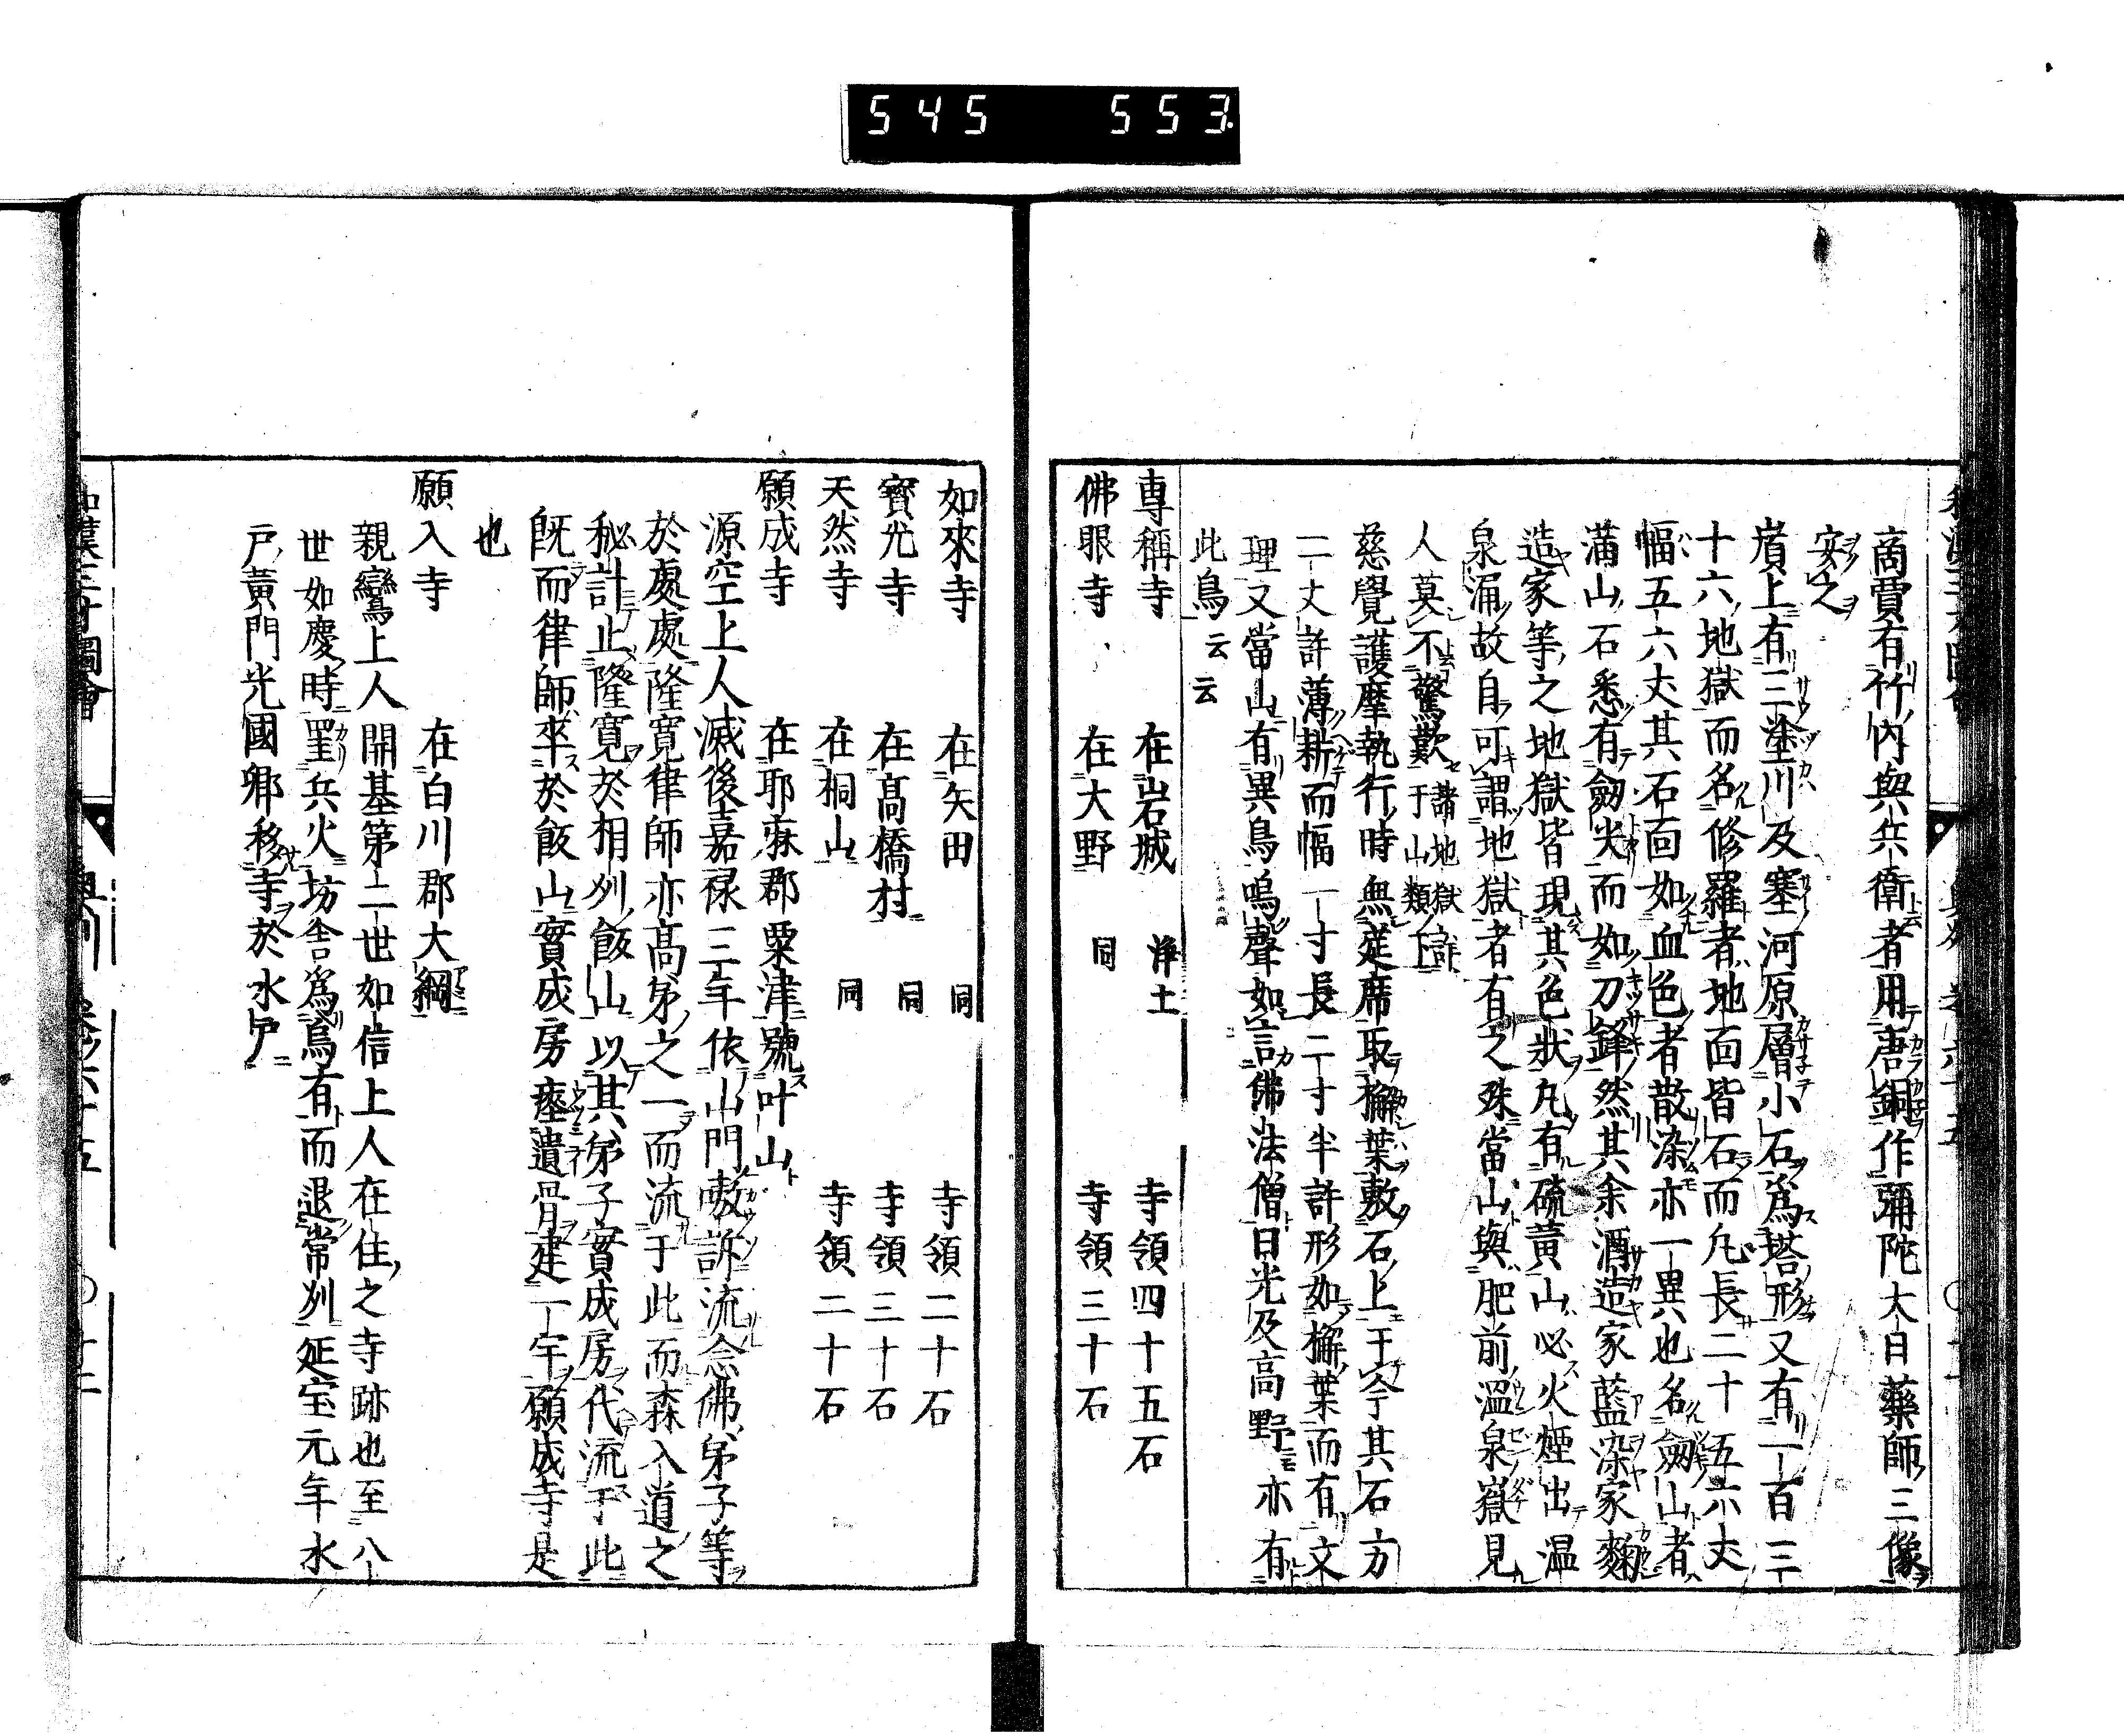 545 553.
商賈有竹內與兵衛者用唐銅作彌陀大日藥師三像
安之
嵿上有三塗川及塞河原層小石爲塔形又有一百三
十六地獄而名修羅者地面皆石而凡長二十五六丈
幅五六丈其石面如血色者散染亦一異也名劔山者
滿山石悉有劔尖而如刀鋒然其余酒造家藍染家麴
造家等之地獄皆現其色狀凡有硫黃山必火煙出温
泉涌故自可謂地獄者有之殊當山與肥前温泉嶽見
人莫不驚歎諸地獄詳于山類下
慈覺護摩執行時無筵席取槲葉敷石上于今其石方
二丈許薄耕而幅一寸長二寸半許形如槲葉而有文
理又當山有異鳥鳴聲如言佛法僧日光及高野亦有
此鳥云云
專稱寺 在岩城 淨土 寺領四十五石
佛眼寺 在大野 同 寺領三十石
如來寺 在矢田 同 寺領二十石
寳光寺 在髙橋村 同 寺領三十石
天然寺 在桐山 同 寺領二十石
願成寺 在耶麻郡粟津號叶山
源空上人滅後嘉禄三年依山門嗷訴流念佛弟子等
於處處隆寛律師亦髙弟之一而流于此而森入道之
秘計止隆寛於相刕飯山以其弟子實成房代流于此
既而律師卒於飯山實成房瘞遺骨建一宇願成寺是
也
願入寺 在白川郡大綱
親鸞上人開基第二世如信上人在住之寺跡也至八
世如慶時罣兵火坊舎爲烏有而退常刕延宝元年水
戸黃門光國卿移寺於水戸
和漢三才圖會 奥州 卷六十五 〇十二